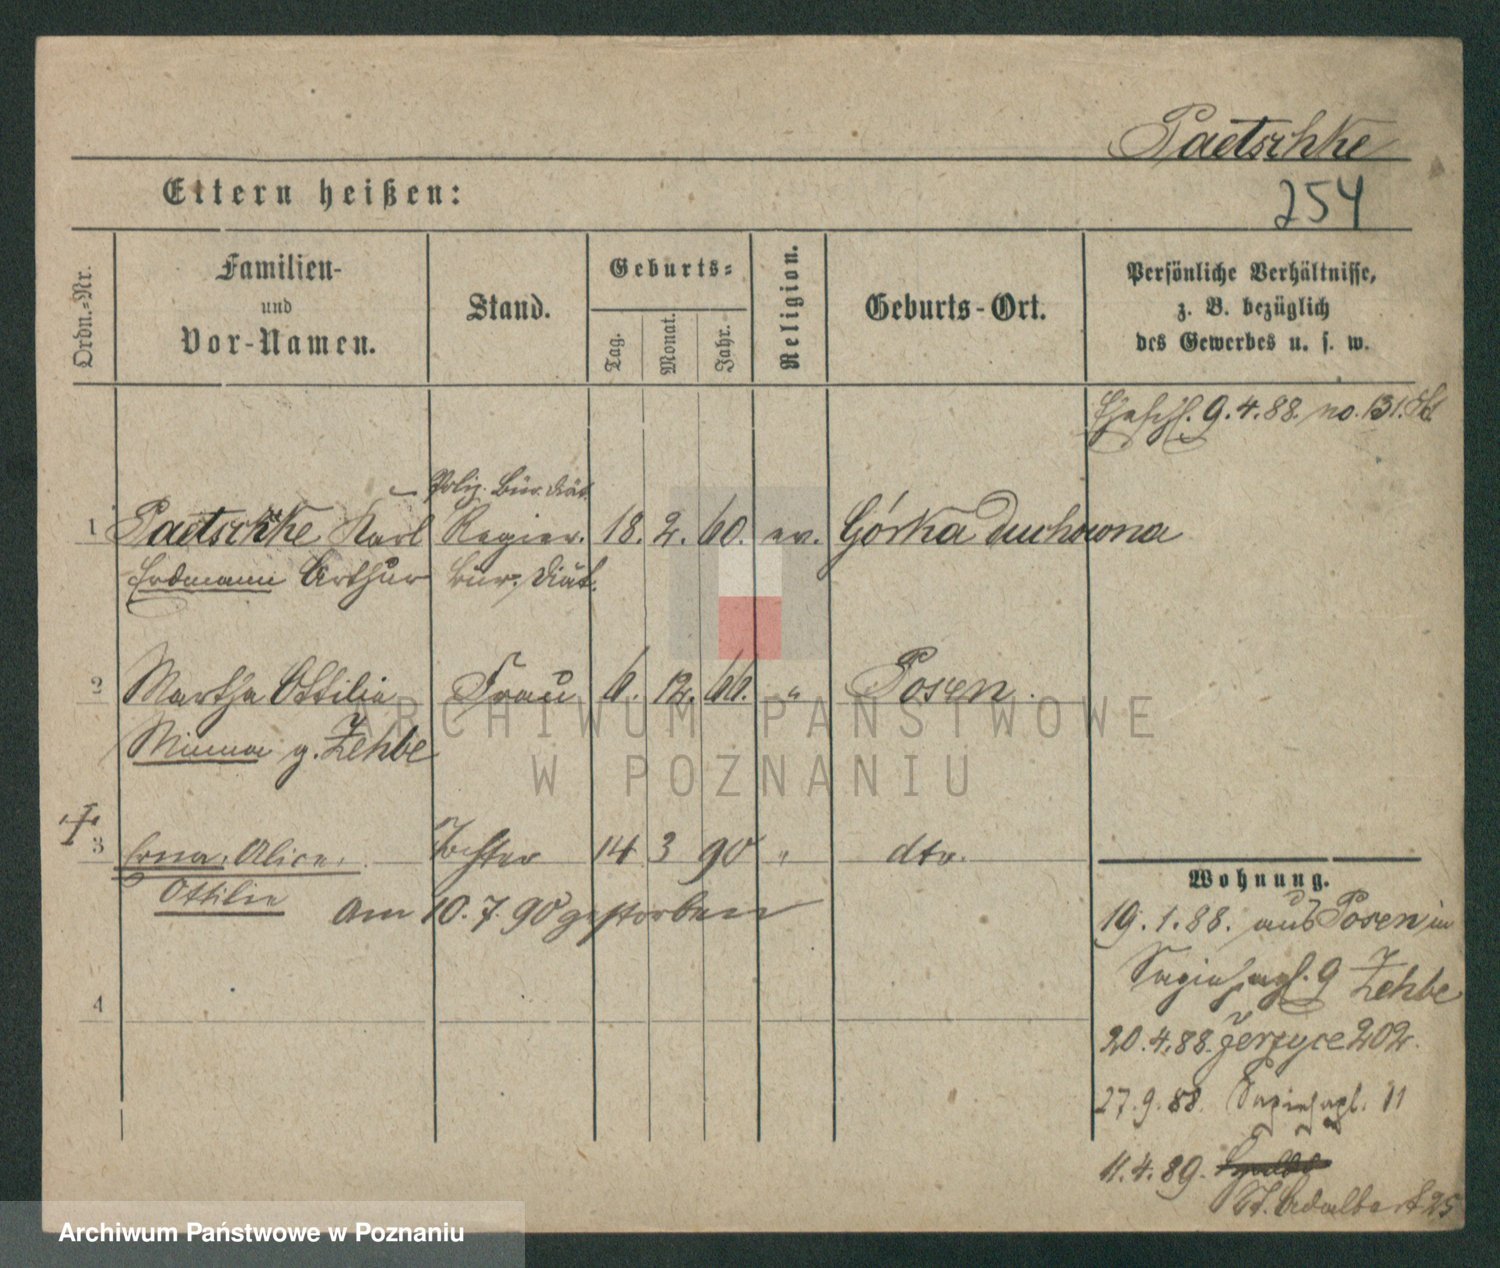 Paetschke
254
Eltern heißen:
Ordn.-Nr.
Familien-
und
Vor-Namen.
Stand.
Geburts-
Tag.
Monat.
Jahr.
Religion.
Geburts-Ort.
Persönliche Verhältnisse,
z. B. bezüglich
des Gewerbes u. s. w.
Eheschl. 9.4.88. no. 131.
Poliz. Bür. Diät.
1 Paetschke Karl Regier. 18. 2. 60. ev. Górka duchowna
Erdmann Arthur bür. Diät.
2 Martha Ottilie Frau 6. 12. 66. " Posen.
Minna g. Zehbe
3 Erna, Alice, Tochter 14 3 90 " dto.
Ottilie
am 10.7.90 gestorben
4
Wohnung.
19.1.88. aus Posen in
Sapiehapl. 9 Zehbe
20.4.88. Jerzyce 202.
27.9.88. Sapiehapl. 11
11.4.89.
St. Adalbert 25
ARCHIWUM PAŃSTWOWE
W POZNANIU
Archiwum Państwowe w Poznaniu